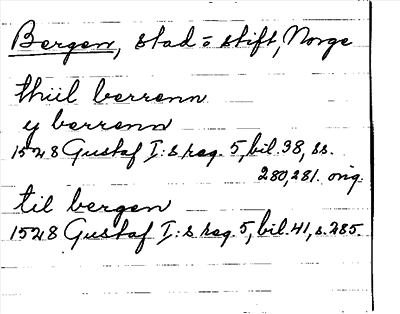 Bergen, stad o stift, Norge
thiil berrenn
y berrenn
1528 Gustaf I:s reg. 5, bil. 38, ss.
280, 281. orig.
til bergen
1528 Gustaf I:s reg. 5, bil. 41, s. 285.